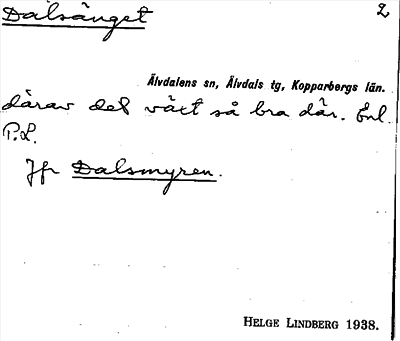 Dalsänget 2
Älvdalens sn, Älvdals tg, Kopparbergs län.
därav det växt så bra där. Enl.
P.L.
Jfr Dalsmyren.
HELGE LINDBERG 1938.